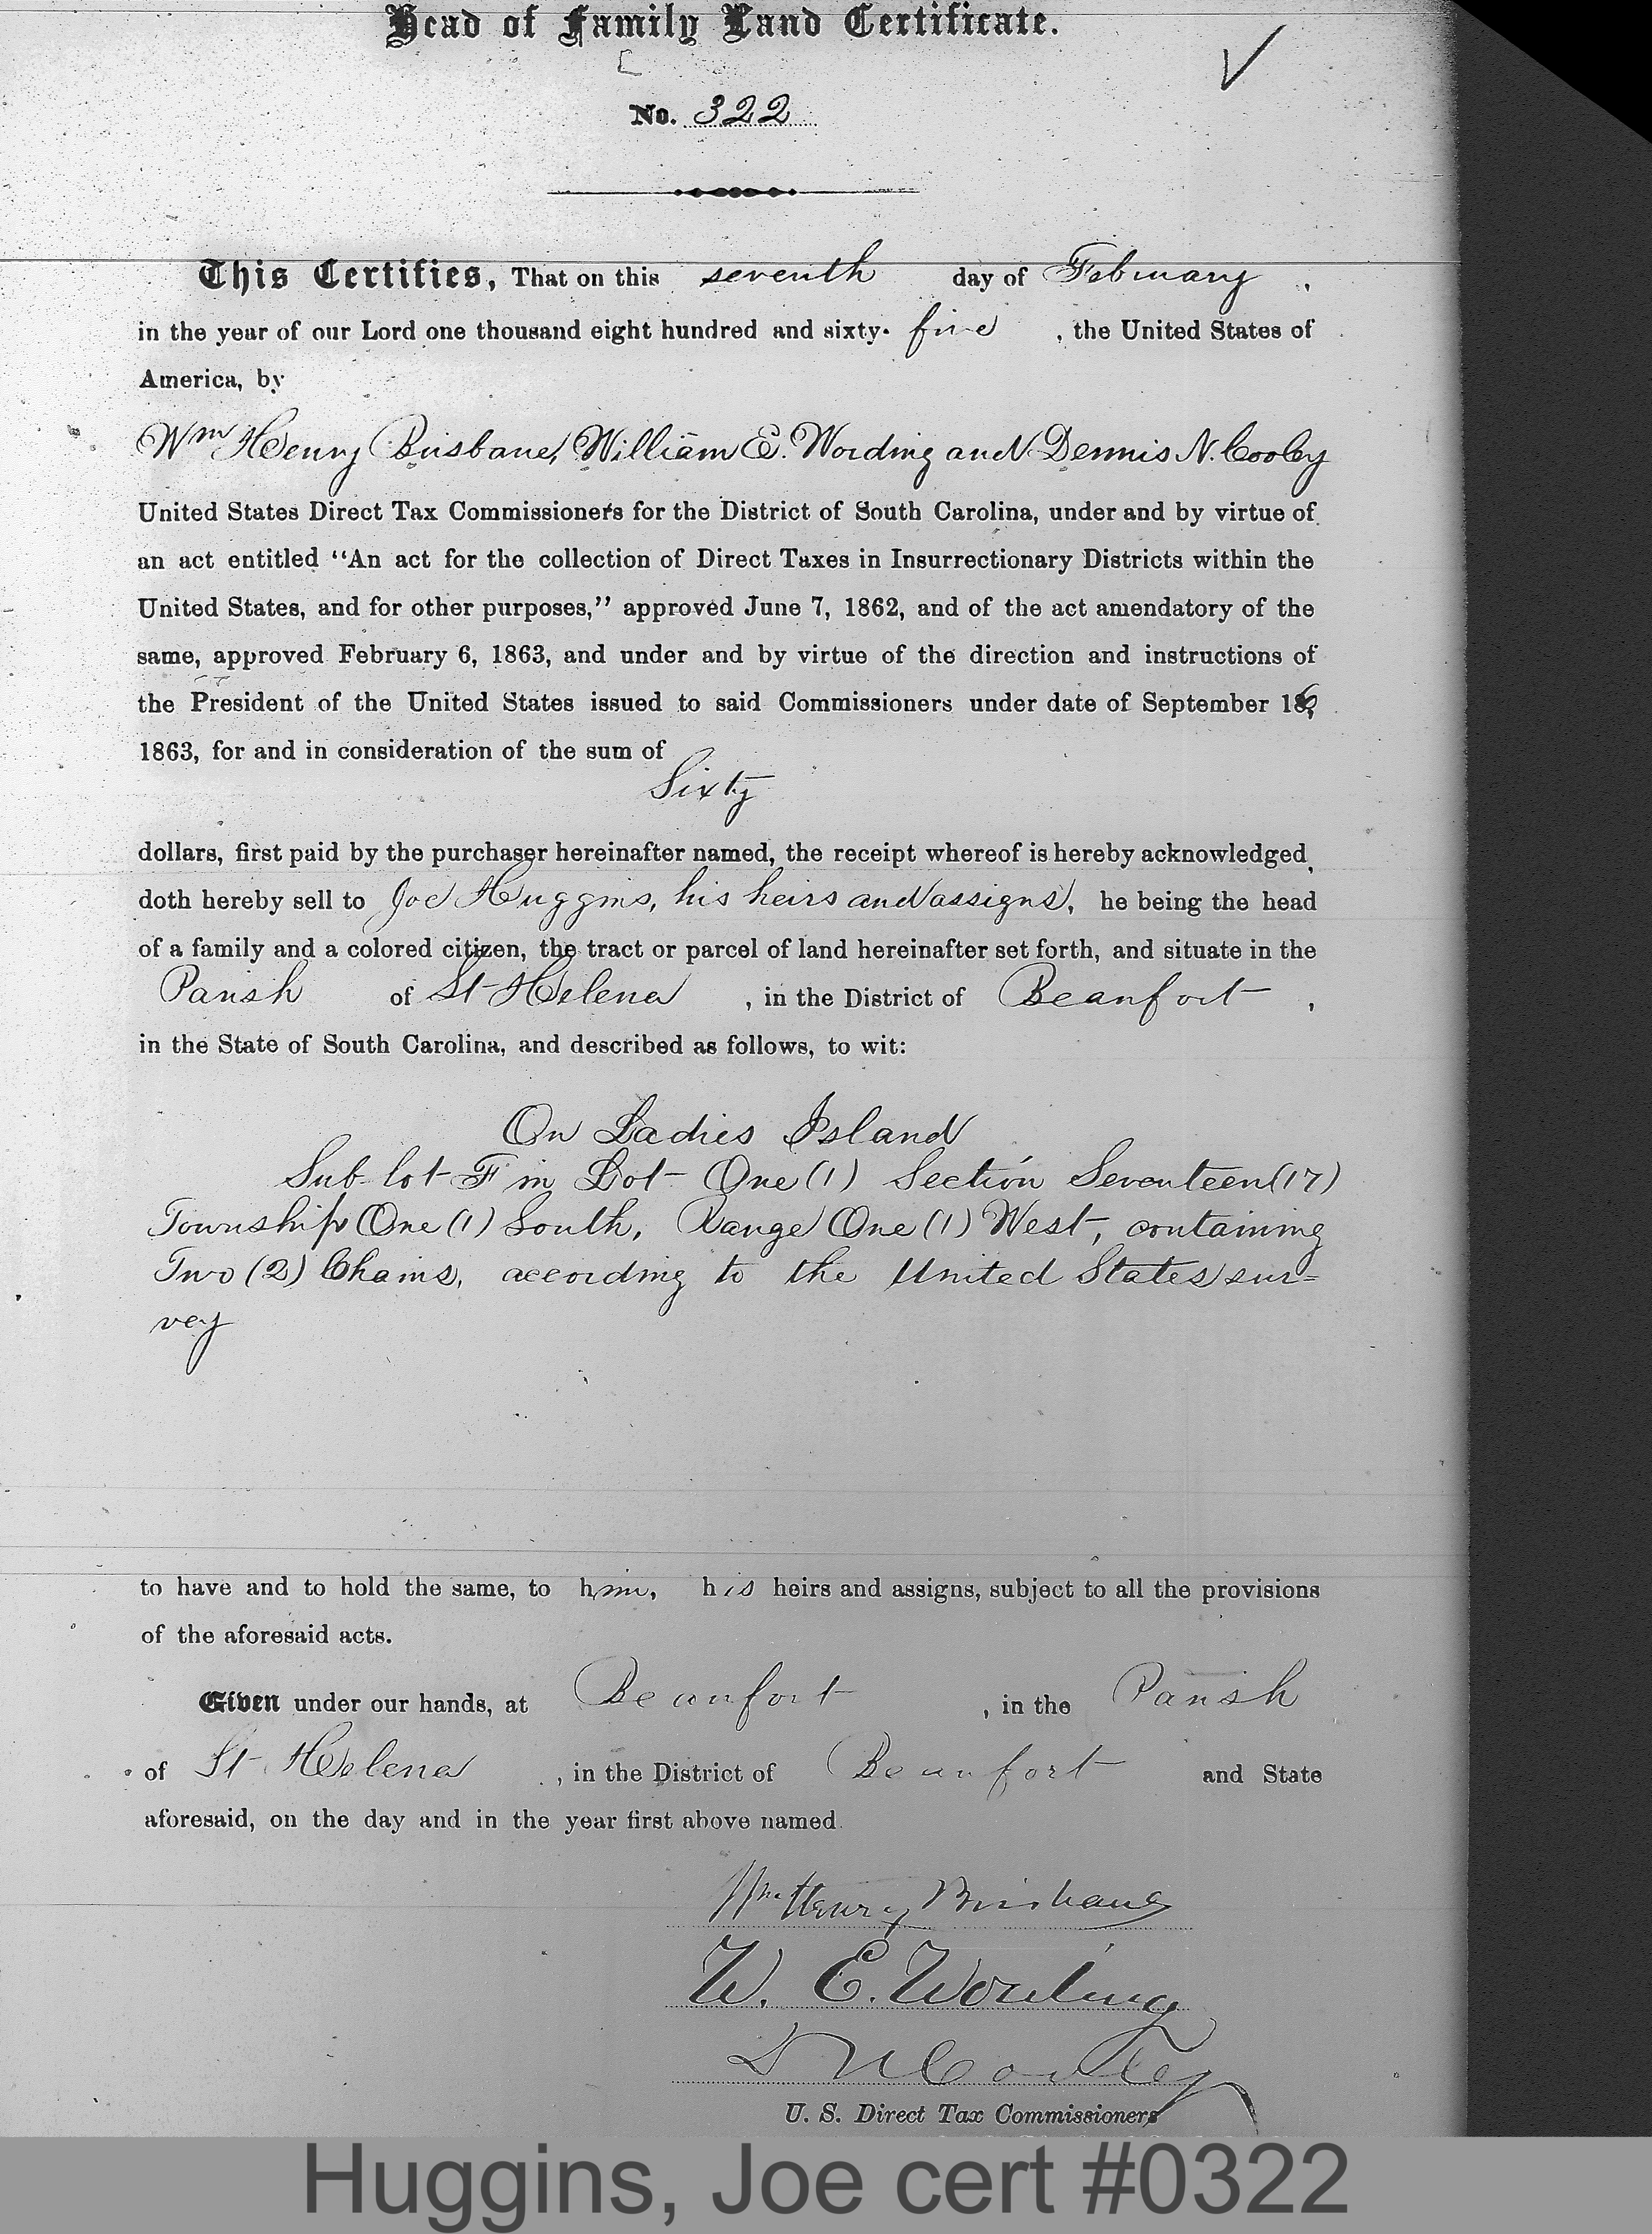 Head of Family Land Certificate.
No. 322
This Certifies, That on this seventh day of February,
in the year of our Lord one thousand eight hundred and sixty-five, the United States of
America, by
Wm Henry Brisbane, William E. Wording and Dennis N. Cooley
United States Direct Tax Commissioners for the District of South Carolina, under and by virtue of
an act entitled "An act for the collection of Direct Taxes in Insurrectionary Districts within the
United States, and for other purposes," approved June 7, 1862, and of the act amendatory of the
same, approved February 6, 1863, and under and by virtue of the direction and instructions of
the President of the United States issued to said Commissioners under date of September 16,
1863, for and in consideration of the sum of
Sixty
dollars, first paid by the purchaser hereinafter named, the receipt whereof is hereby acknowledged,
doth hereby sell to Joe Huggins, his heirs and assigns, he being the head
of a family and a colored citizen, the tract or parcel of land hereinafter set forth, and situate in the
Parish of St Helena, in the District of Beaufort,
in the State of South Carolina, and described as follows, to wit:
On Ladies Island
Sub lot F in Lot One (1) Section Seventeen (17)
Township One (1) South, Range One (1) West, containing
Two (2) Chains, according to the United States sur=
vey
to have and to hold the same, to him, his heirs and assigns, subject to all the provisions
of the aforesaid acts.
Given under our hands, at Beaufort, in the Parish
of St Helena, in the District of Beaufort and State
aforesaid, on the day and in the year first above named.
Wm Henry Brisbane
W. E. Wording
D N Cooley
U. S. Direct Tax Commissioners
Huggins, Joe cert #0322